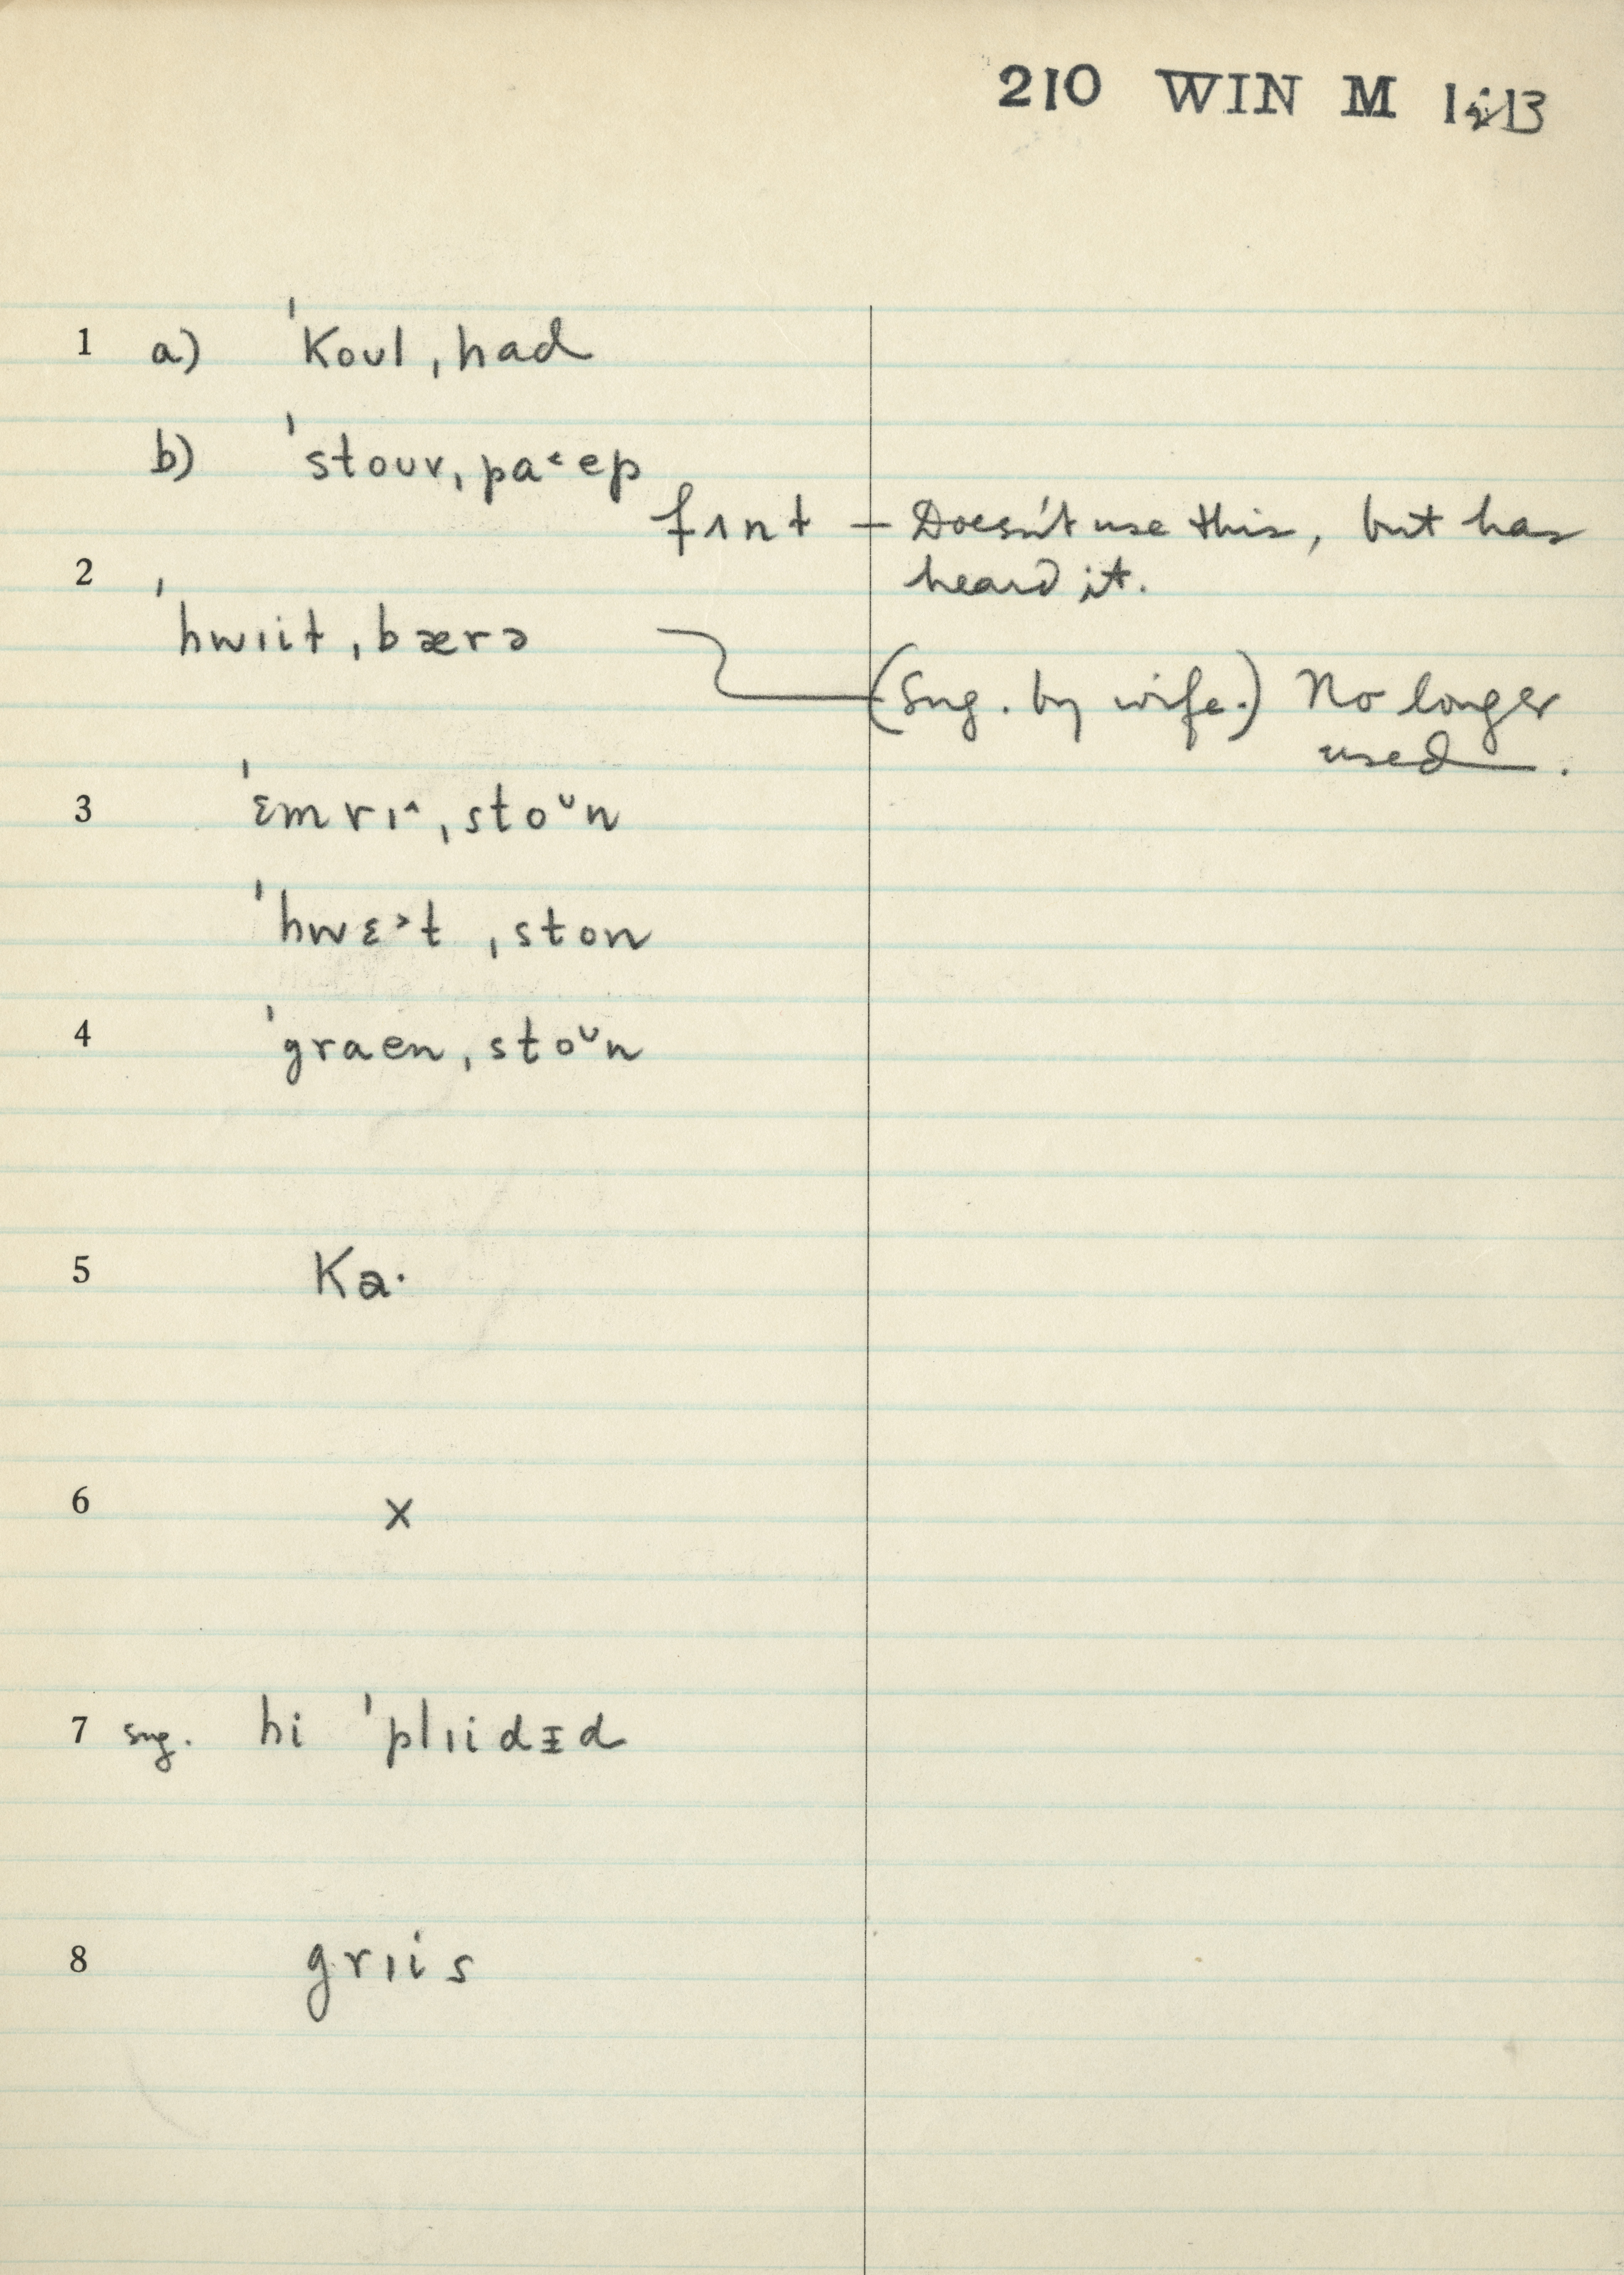 210 WIN M 1:13
1 a) ˈkoʊl ˌhad
b) ˈstoʊv ˌpa˂ep
fɪnt — Doesn't use this, but has
2 heard it.
ˈhwɪit ˌbærə
(Sug. by wife.) No longer
used.
3 ˈɛmrɪ^ ˌstoᶷn
ˈhwɛ˃t ˌston
4 ˈgraen ˌstoᶷn
5 ka·
6 x
7 sug. hi ˈplɪidɪ̵d
8 grɪis